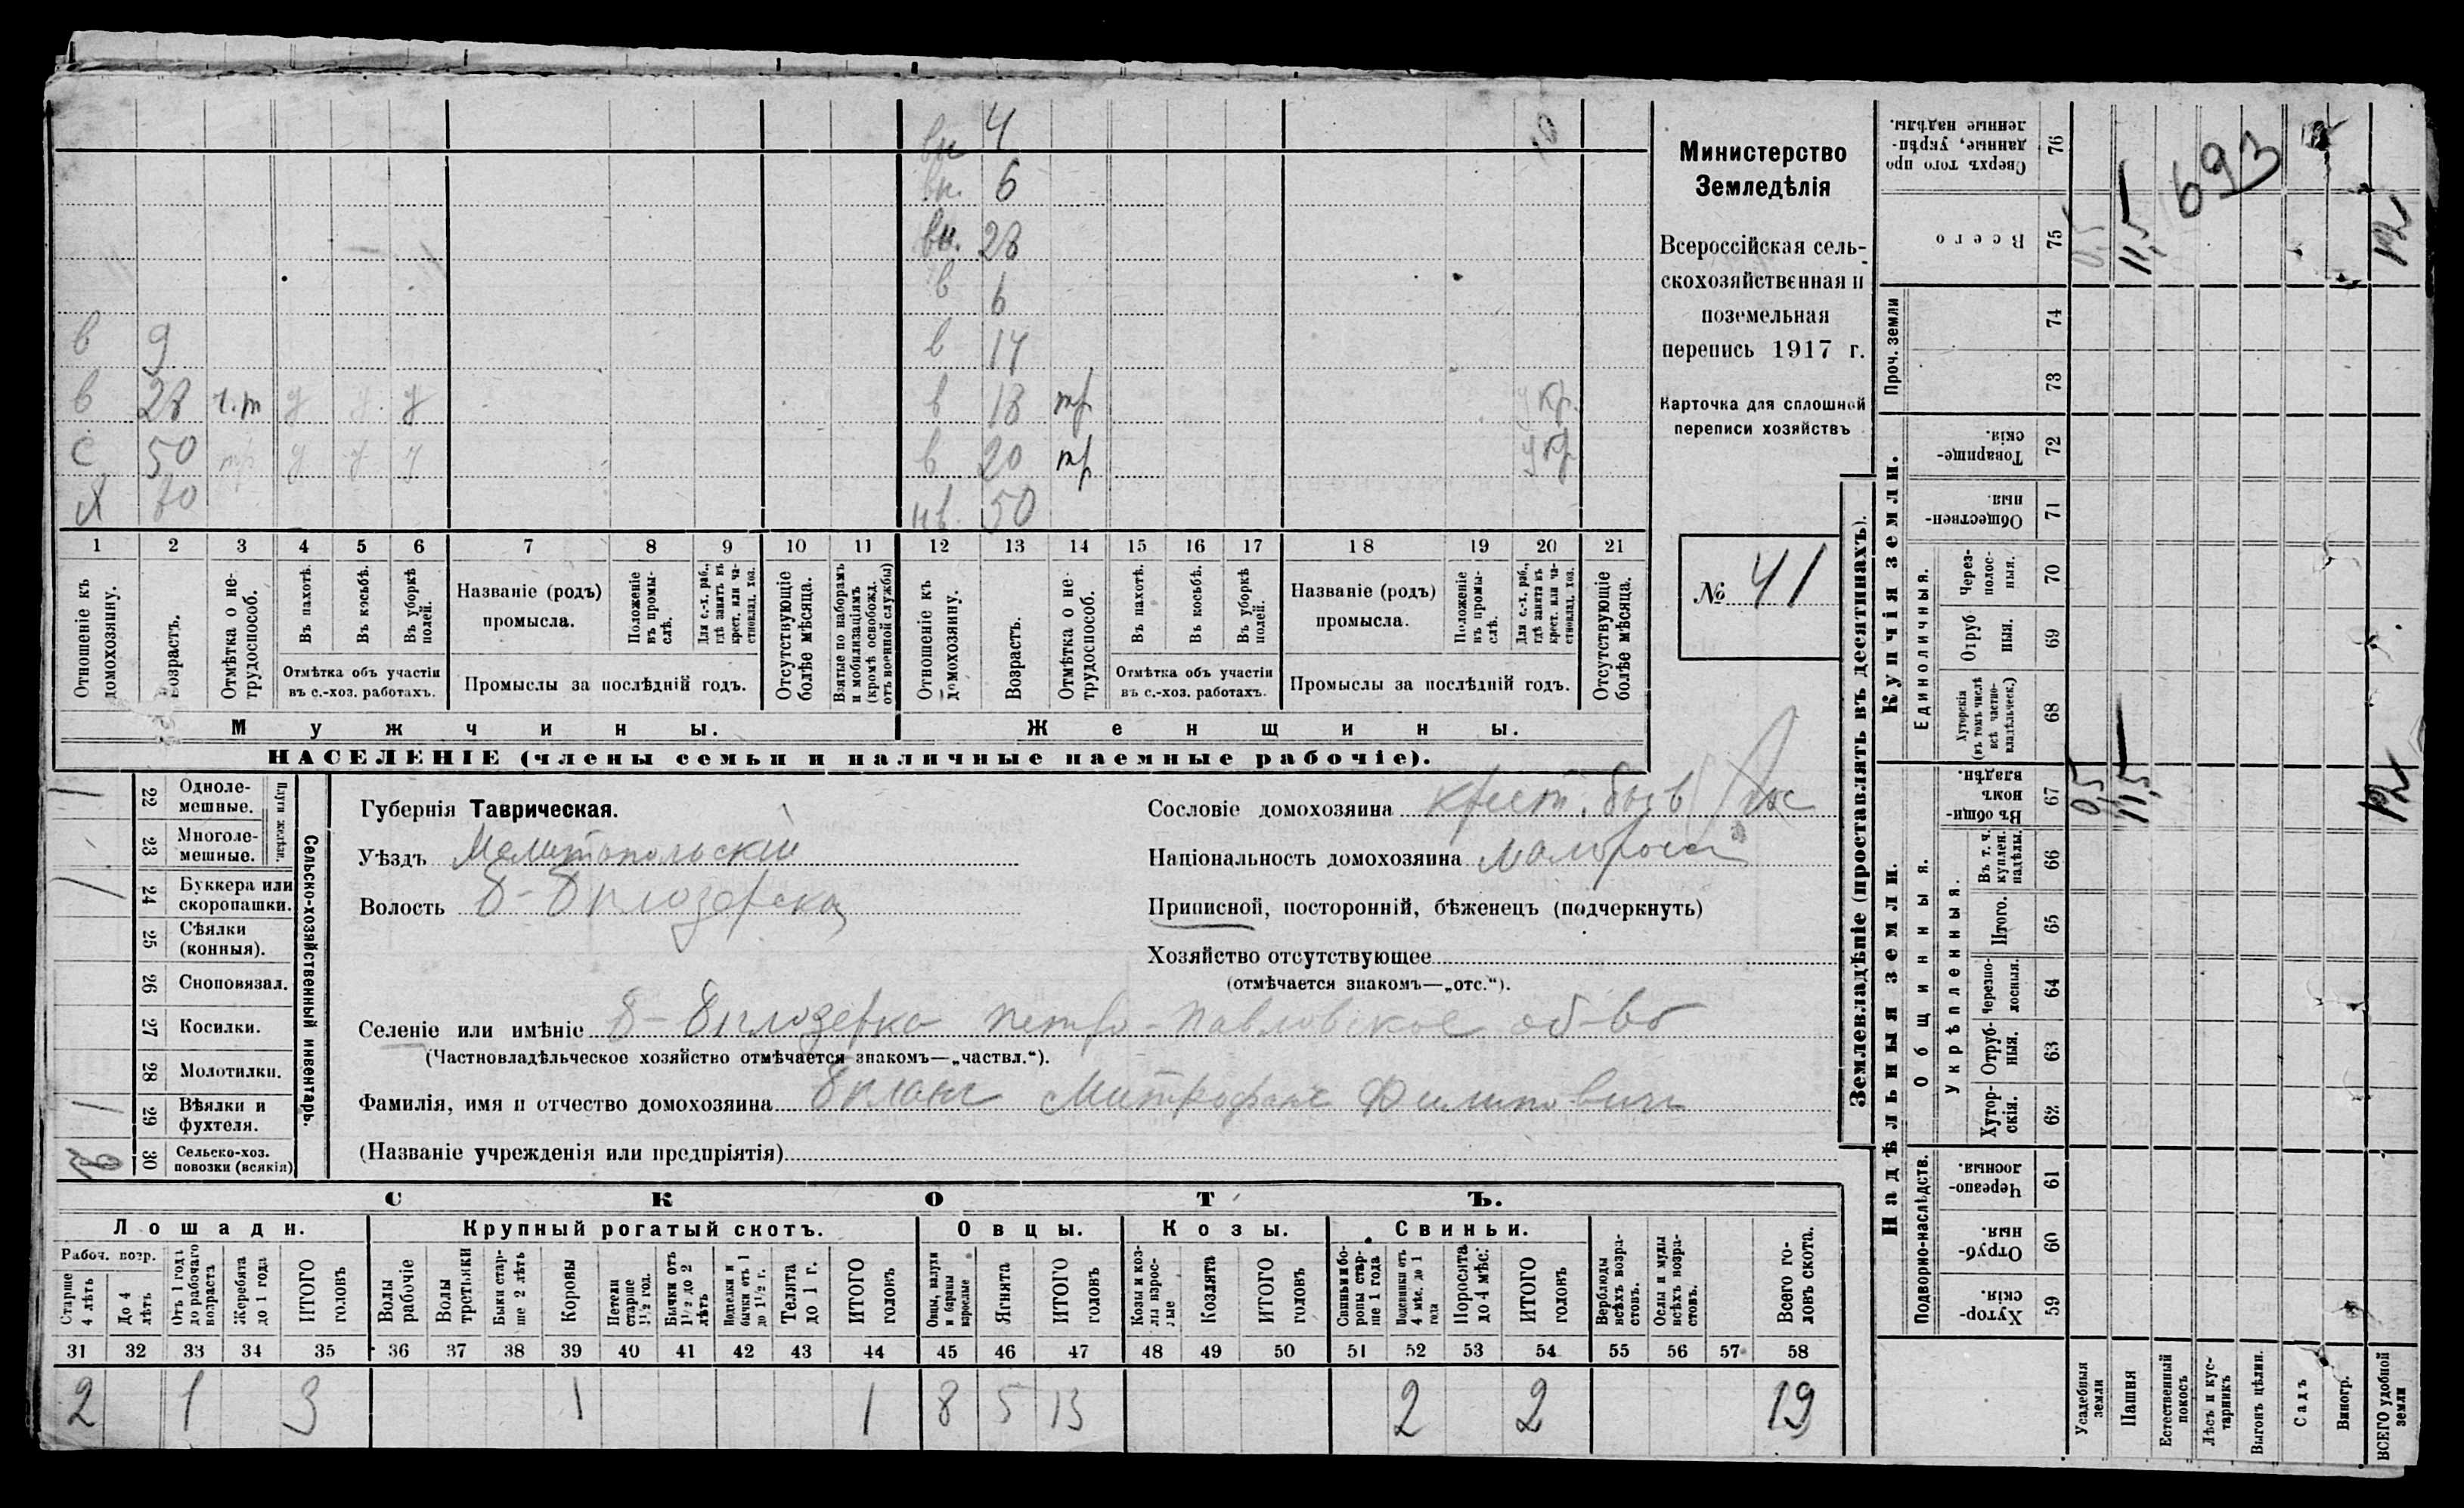 вн 4
вн. 6
вн. 28
в 6
в 9 в 14
в 28 ч.т у у у в 18 тр у кр.
с 50 тр у у у в 20 тр у кр
Х 70 нв. 50
1 2 3 4 5 6 7 8 9 10 11 12 13 14 15 16 17 18 19 20 21
Отношеніе къ домохозяину.
Возрастъ.
Отмѣтка о не-трудоспособ.
Въ пахотѣ.
Въ косьбѣ.
Въ уборкѣ полей.
Отмѣтка объ участіи
въ с.-хоз. работахъ.
Названіе (родъ)
промысла.
Положеніе въ промы-слѣ.
Для с.-х. раб., гдѣ занятъ въ крест. или ча-стновлад. хоз.
Промыслы за послѣдній годъ.
Отсутствующіе болѣе мѣсяца.
Взятые по наборамъ и мобилизаціямъ (кромѣ освобожд. отъ военной службы)
Отношеніе къ домохозяину.
Возрастъ.
Отмѣтка о не-трудоспособ.
Въ пахотѣ.
Въ косьбѣ.
Въ уборкѣ полей.
Отмѣтка объ участіи
въ с.-хоз. работахъ.
Названіе (родъ)
промысла.
Положеніе въ промы-слѣ.
Для с.-х. раб., гдѣ занята въ крест. или ча-стновлад. хоз.
Промыслы за послѣдній годъ.
Отсутствующіе болѣе мѣсяца.
Мужчины. Женщины.
НАСЕЛЕНІЕ (члены семьи и наличные наемные рабочіе).
Министерство
Земледѣлія
Всероссійская сель-
скохозяйственная и
поземельная
перепись 1917 г.
Карточка для сплошной
переписи хозяйствъ
№ 41
Сельско-хозяйственный инвентарь.
Плуги желѣзн.
1 22 Однолемешные.
23 Многоле-мешные.
1 24 Буккера или скоропашки.
25 Сѣялки (конныя).
26 Сноповязал.
27 Косилки.
28 Молотилки.
1 29 Вѣялки и фухтеля.
30 Сельско-хоз. повозки (всякія)
Губернія Таврическая.
Уѣздъ Мелитопольскій
Волость
Сословіе домохозяина крест.
Національность домохозяина малоросс
Приписной, посторонній, бѣженецъ (подчеркнуть)
Хозяйство отсутствующее
(отмѣчается знакомъ—„отс.“).
Селеніе или имѣніе Петро-Павловское об-во
(Частновладѣльческое хозяйство отмѣчается знакомъ—„частвл.“).
Фамилія, имя и отчество домохозяина Митрофанъ Филипович
(Названіе учрежденія или предпріятія)
СКОТЪ.
Лошади. Крупный рогатый скотъ. Овцы. Козы. Свиньи.
Рабоч. возр.
Старше 4 лѣтъ
До 4 лѣтъ
Отъ 1 года до рабочаго возраста
Жеребята до 1 года
ИТОГО головъ
Волы рабочіе
Волы третьяки
Быки стар-ше 2 лѣтъ
Коровы
Нетели старше 1½ год.
Бычки отъ 1½ до 2 лѣтъ
Подтелки и бычки отъ 1 до 1½ г.
Телята до 1 г.
ИТОГО головъ
Овцы, валухи и бараны взрослые
Ягнята
ИТОГО головъ
Козы и коз-лы взрос-лые
Козлята
ИТОГО головъ
Свиньи и бо-ровы стар-ше 1 года
Подсвинки отъ 4 мѣс. до 1 года
Поросята до 4 мѣс.
ИТОГО головъ
Верблюды всѣхъ возра-стовъ.
Ослы и мулы всѣхъ возра-стовъ.
Всего го-ловъ скота.
31 32 33 34 35 36 37 38 39 40 41 42 43 44 45 46 47 48 49 50 51 52 53 54 55 56 57 58
2 1 3 1 1 8 5 13 2 2 19
Землевладѣніе (проставлять въ десятинахъ).
Купчія земли.
Надѣльныя земли.
693
Сверхъ того про-данные, укрѣп-ленные надѣлы. 76
Всего 75 0,5 11,5 12
Проч. земли 74
73
Товарище-скія. 72
Обществен-ныя. 71
Единоличныя.
Через-полос-ныя. 70
Отруб-ныя. 69
Хуторскія (въ томъ числѣ всѣ частно-владѣльческ.) 68
Общинныя.
Въ общин-номъ владѣн. 67 0,5 11,5 12
Укрѣпленныя.
Въ т. ч. куплен. надѣлы. 66
Итого. 65
Черезпо-лосныя. 64
Отруб-ныя. 63
Хутор-скія. 62
Подворно-наслѣдств.
Черезпо-лосныя. 61
Отруб-ныя. 60
Хутор-скія. 59
Усадебныя земли
Пашня
Естественный покосъ
Лѣсъ и кус-тарникъ
Выгонъ цѣлин.
Садъ
Виногр.
ВСЕГО удобной земли